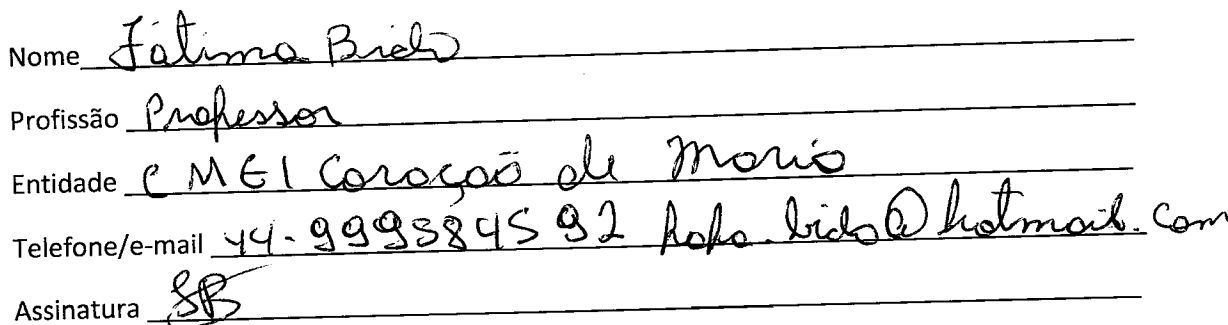 Nome Fátima Bido
Profissão Professor
Entidade CMEI Coração de Maria
Telefone/e-mail 44-999384592 @hotmail.com
Assinatura